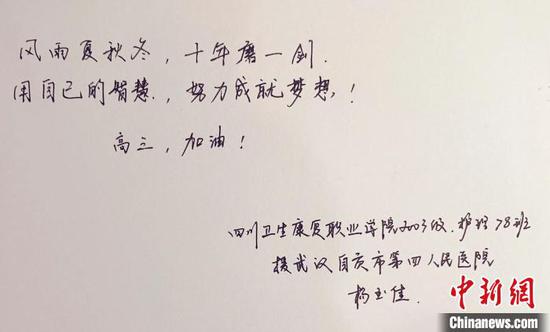 风雨夏秋冬，十年磨一剑.
用自己的智慧，努力成就梦想！
高三，加油！
四川卫生康复职业学院2003级.护理78班
援武汉自贡市第四人民医院
杨玉佳.
中新网
Chinanews.com